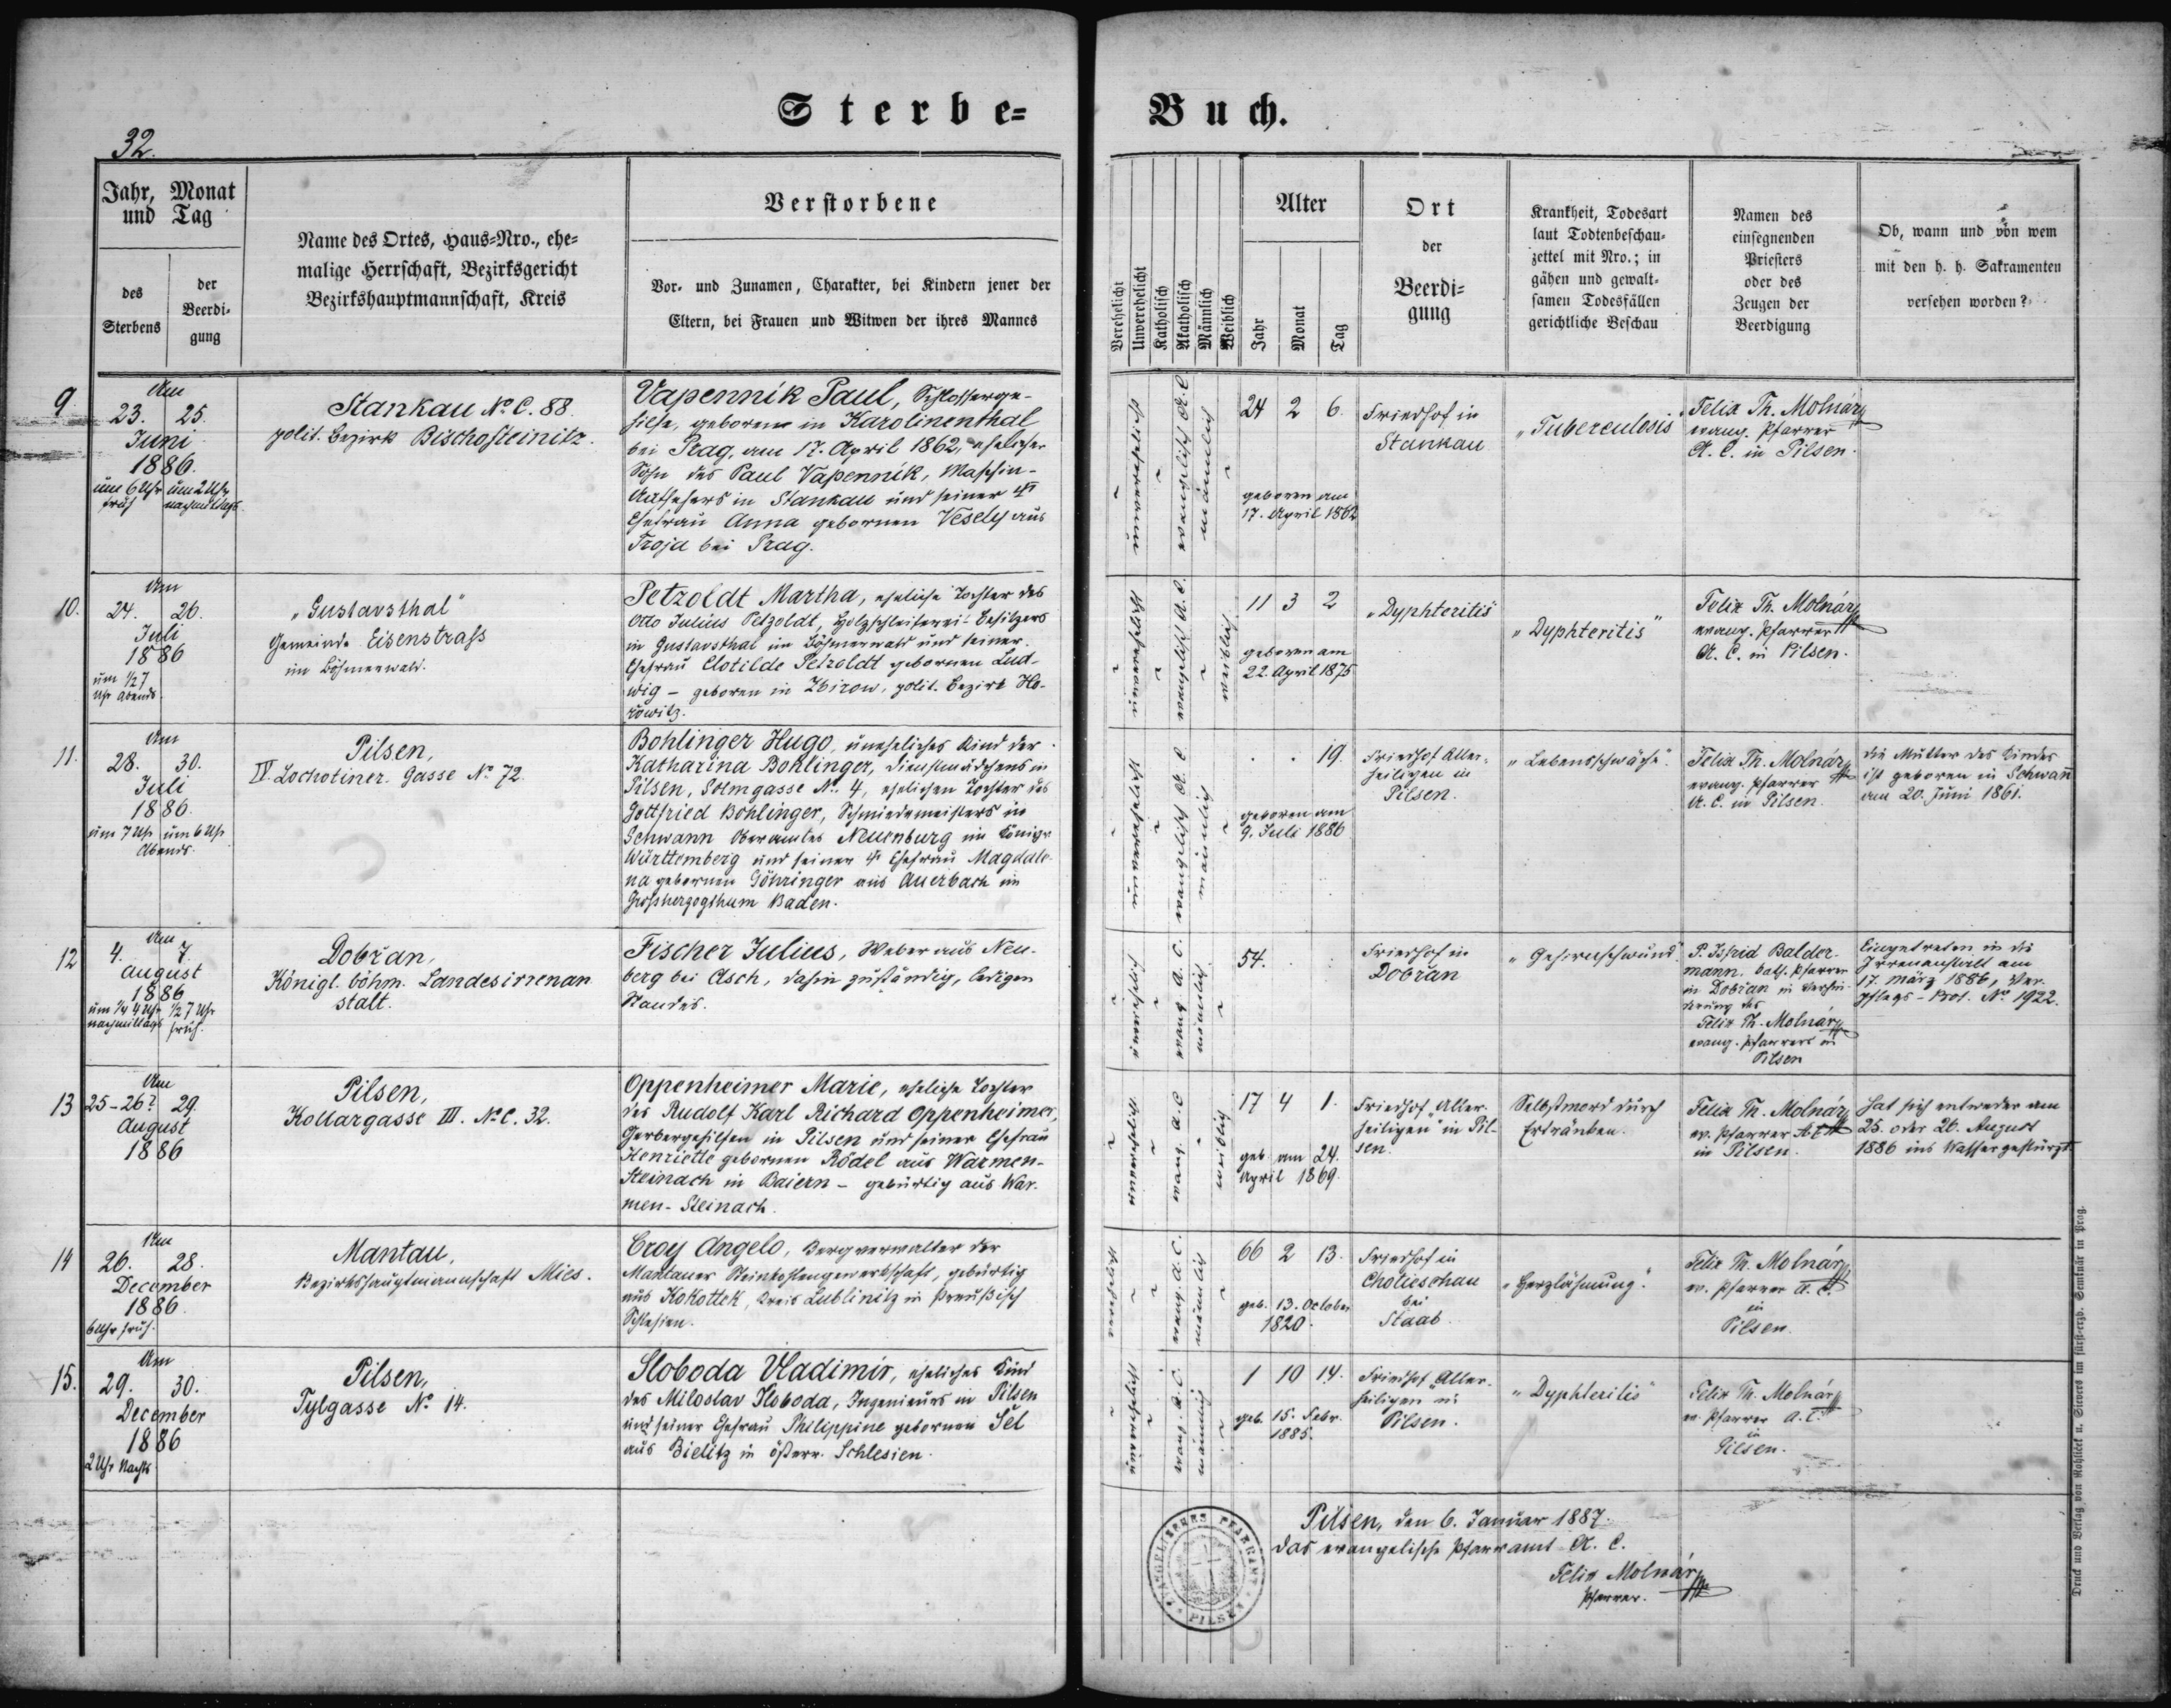 Sterbe=
Buch.
32.
Jahr, Monat
und Tag
des
Sterbens
der
Beerdi-
gung
Name des Ortes, Haus=Nro., ehe=
malige Herrschaft, Bezirksgericht
Bezirkshauptmannschaft, Kreis
Verstorbene
Vor= und Zunamen, Charakter, bei Kindern jener der
Eltern, bei Frauen und Witwen der ihres Mannes
Verehelicht
Unverehelicht
Katholisch
Akatholisch
Männlich
Weiblich
Alter
Jahr
Monat
Tag
Ort
der
Beerdi=
gung
Krankheit, Todesart
laut Todtenbeschau=
zettel mit Nro.; in
gähen und gewalt=
samen Todesfällen
gerichtliche Beschau
Namen des
einsegnenden
Priesters
oder des
Zeugen der
Beerdigung
Ob, wann und von wem
mit den h. h. Sakramenten
versehen worden?
9
Am
23. 25.
Juni
1886.
um 6 Uhr um 2 Uhr
früh nachmittags
Stankau No C. 88.
polit. Bezirk Bischofteinitz.
Vapenník Paul, Schlosserge-
hilfe, geboren in Karolinenthal
bei Prag, am 17. April 1862, ehelicher
Sohn des Paul Vapenník, Maschin-
Aufsehers in Stankau und seiner
Ehefrau Anna gebornen Veselý aus
Troja bei Prag.
unverehelicht
evangelisch A. C.
männlich
24 2 6.
geboren am
17. April 1862
Friedhof in
Stankau
"Tuberculosis
Felix Th. Molnár
evang. Pfarrer
A. C. in Pilsen.
10.
Am
24. 26.
Juli
1886
um 1/2 7
Uhr Abends.
"Gustavsthal"
Gemeinde Eisenstrass
im Böhmerwald.
Petzoldt Martha, eheliche Tochter des
Otto Julius Petzoldt, Holzschleiferei-Besitzers
in Gustavsthal im Böhmerwald und seiner
Ehefrau Clotilde Petzoldt gebornen Lud-
wig – geboren in Zbirow, polit. Bezirk Ho-
řowitz.
unverehelicht
evangelisch A. C.
weiblich
11 3 2
geboren am
22. April 1875
"Dyphteritis"
"Dyphteritis"
Felix Th. Molnár
evang. Pfarrer
A. C. in Pilsen.
11.
Am
28. 30.
Juli
1886.
um 7 Uhr um 6 Uhr
Abends.
Pilsen,
IV. Lochotiner Gasse No 72.
Bohlinger Hugo, uneheliches Kind der
Katharina Bohlinger, Dienstmädchens in
Pilsen, Solmgasse No. 4, ehelichen Tochter des
Gottfried Bohlinger, Schmiedemeisters in
Schwann Oberamtes Neuenburg im Königr.
Württemberg und seiner Ehefrau Magdale-
na gebornen Göhringer aus Auerbach im
Grossherzogthum Baden.
unverehelicht
evangelisch A. C.
männlich
. . 19.
geboren am
9. Juli 1886
Friedhof Aller-
heiligen in
Pilsen.
"Lebensschwäche".
Felix Th. Molnár
evang. Pfarrer
A. C. in Pilsen.
die Mutter des Kindes
ist geboren in Schwann
am 20. Juni 1861.
12
Am
4. 7.
August
1886
um 1/4 4 Uhr 1/2 7 Uhr
nachmittags früh.
Dobřan,
Königl. böhm. Landesirrenan
stalt.
Fischer Julius, Weber aus Neu-
berg bei Asch, dahin zuständig, ledigen
Standes.
unverehelicht
evang. A. C.
männlich
54.
Friedhof in
Dobřan
"Gehirnschwund".
P. Balder-
mann, kath. Pfarrer
in Dobřan in Verhin-
derung des
Felix Th. Molnár
evang. Pfarrers in
Pilsen
Eingetreten in die
Irrenanstalt am
17. März 1886, Ver-
pflegs-Prot. No 1922.
13
Am
25-26? 29.
August
1886
Pilsen,
Kollargasse III. No C. 32.
Oppenheimer Marie, eheliche Tochter
des Rudolf Karl Richard Oppenheimer,
Gerbergehilfen in Pilsen und seiner Ehefrau
Henriette gebornen Rödel aus Warmen-
Steinach in Baiern – gebürtig aus War-
men-Steinach.
unverehelicht
evang. A. C
weiblich
17 4 1.
geb. am 24.
April 1869.
Friedhof "Aller-
heiligen" in Pil-
sen.
Selbstmord durch
Ertränken.
Felix Th. Molnár
ev. Pfarrer A. C.
in Pilsen.
Hat sich entweder am
25. oder 26. August
1886 ins Wasser gestürzt.
14
Am
26. 28.
December
1886.
6 Uhr früh.
Mantau,
Bezirkshauptmannschaft Mies.
Croy Angelo, Bergverwalter der
Mantauer Steinkohlengewerkschaft, gebürtig
aus Kokottek, Kreis Lublinitz in Preußisch
Schlesien.
verehelicht
evang. A. C.
männlich
66 2 13.
geb. 13. October
1820.
Friedhof in
Chotieschau
bei
Staab.
"Herzlähmung".
Felix Th. Molnár
ev. Pfarrer A. C.
in
Pilsen.
15.
Am
29. 30.
December
1886
2 Uhr Nachts
Pilsen,
Tylgasse No 14.
Sloboda Vladimír, eheliches Kind
des Miloslav Sloboda, Ingenieurs in Pilsen
und seiner Ehefrau Philippine gebornen Šel
aus Bielitz in österr. Schlesien.
unverehelicht
evang. A. C.
männlich
1 10 14.
geb. 15. Febr.
1885.
Friedhof "Aller-
heiligen in
Pilsen.
"Dyphteritis"
Felix Th. Molnár
ev. Pfarrer A. C.
in
Pilsen.
Pilsen, den 6. Januar 1887.
Das evangelische Pfarramt A. C.
Felix Molnár
Pfarrer.
EVANGELISCHES PFARRAMT
PILSEN
Druck und Verlag von Rohliček u. Sievers im fürst-erzb. Seminär in Prag.